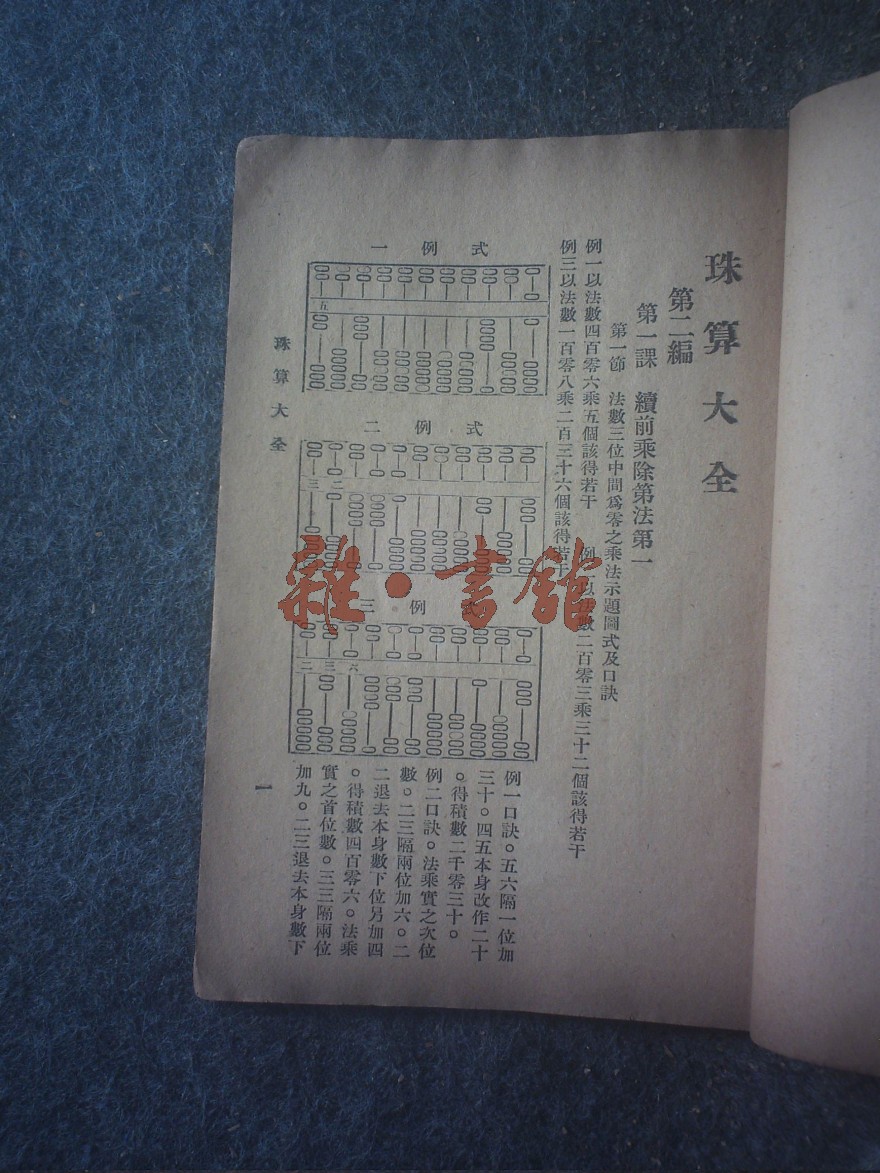 珠算大全
第二編
第一課　續前乘除第法第一
第一節　法數三位中間爲零之乘法示題圖式及口訣
例一以法數四百零六乘五個該得若干　例二以法數二百零三乘三十二個該得若干
例三以法數一百零八乘二百三十六個該得若干
式例一
五
式例二
二
三
式例三
六
三
二
例一口訣。五六隔一位加
三十。四五本身改作二十
。得積數二千零三十。
例二口訣。法乘實之次位
數。二三隔兩位加六。二
二退去本身數下位另加四
。得積數四百零六。法乘
實之首位數。三三隔兩位
加九。二三退去本身數下
珠算大全
一
雜·書館